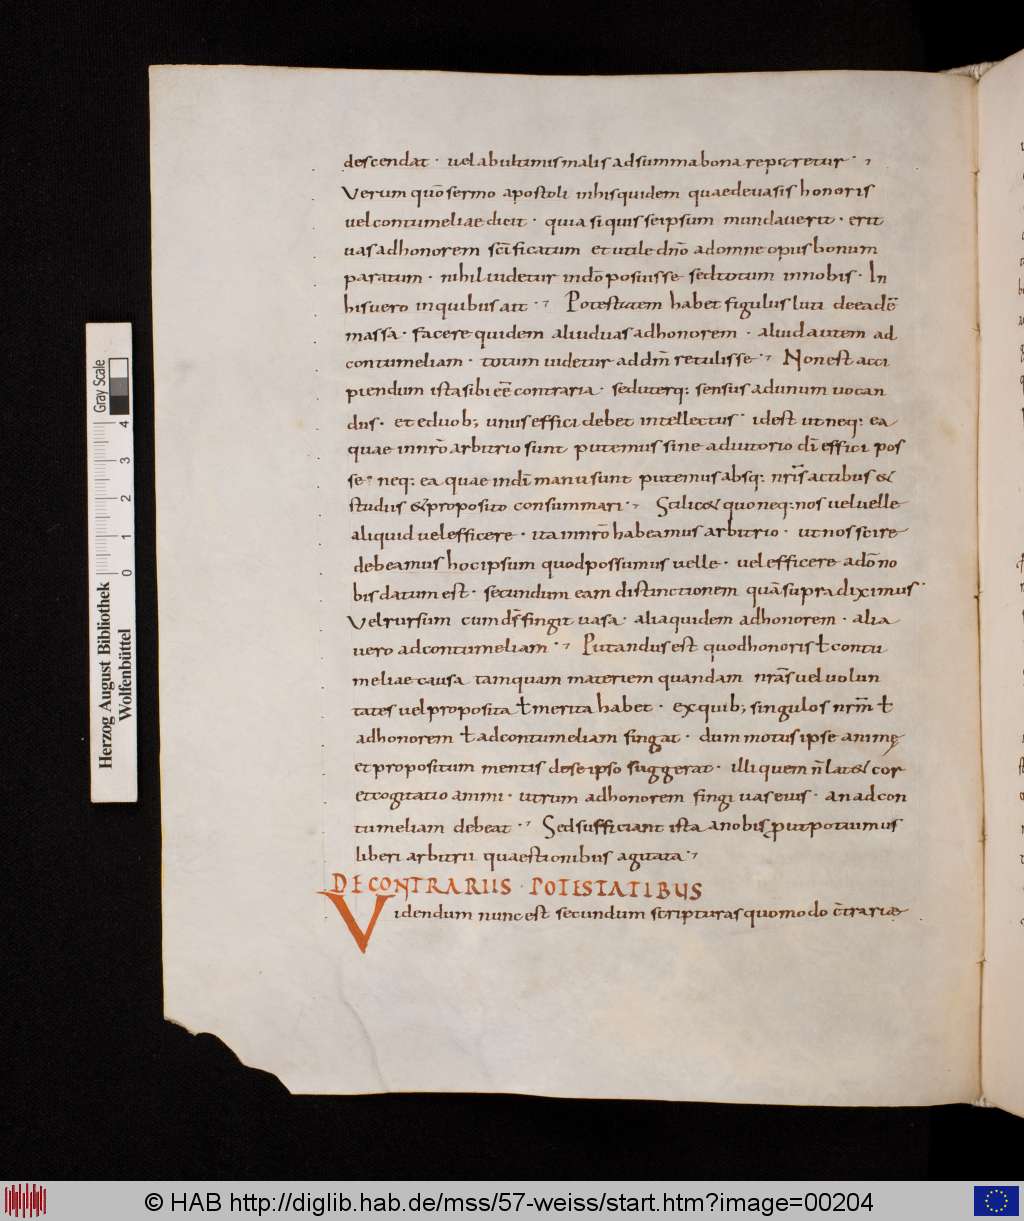 descendat · vel ab ultimis malis ad summa bona reparetur ·
Verum quō sermo apostoli in his quidem quae de vasis honoris
vel contumeliae dicit · quia si quis se ipsum mundaverit · erit
vas ad honorem scīficatum et utile dn̄o ad omne opus bonum
paratum · nihil videtur in dō posuisse sed totum in nobis · In
his vero in quibus ait · Potestatem habet figulus luti de eadē
massa · facere quidem aliud vas ad honorem · aliud autem ad
contumeliam · totum videtur ad dm̄ retulisse · Non est acci
piendum ista sibi eē contraria · sed uterq: sensus ad unum vocan
dus · et e duob; unus effici debet intellectus · id est ut neq: ea
quae in nr̄o arbitrio sunt putemus sine adiutorio dī effici pos
se · neq: ea quae in dī manu sunt putemus absq: nrīs actibus &
studiis & proposito consummari · Scilic& quo neq: nos vel velle
aliquid vel efficere · ita in nr̄o habeamus arbitrio · ut nos scire
debeamus hoc ipsum quod possumus velle · vel efficere a dō no
bis datum est · secundum eam distinctionem quā supra diximus ·
Vel rursum cum ds̄ fingit vasa · alia quidem ad honorem · alia
vero ad contumeliam · Putandus est quod honoris ł contu
meliae causa tamquam materiem quandam nrās vel volun
tates vel proposita ł merita habet · ex quib; singulos nrm̄ ł
ad honorem ł ad contumeliam fingat · dum motus ipse animę
et propositum mentis de se ipso suggerat · illi quem n̄ lat& cor
et cogitatio animi · utrum ad honorem fingi vas eius · an ad con
tumeliam debeat · Sed sufficiant ista a nobis put potuimus
liberi arbitrii quaestionibus agitata ·
DE CONTRARIIS · POTESTATIBUS
Videndum nunc est secundum scripturas quomodo c̄trariae
Herzog August Bibliothek
Wolfenbüttel
0 1 2 3 4
Gray Scale
© HAB http://diglib.hab.de/mss/57-weiss/start.htm?image=00204